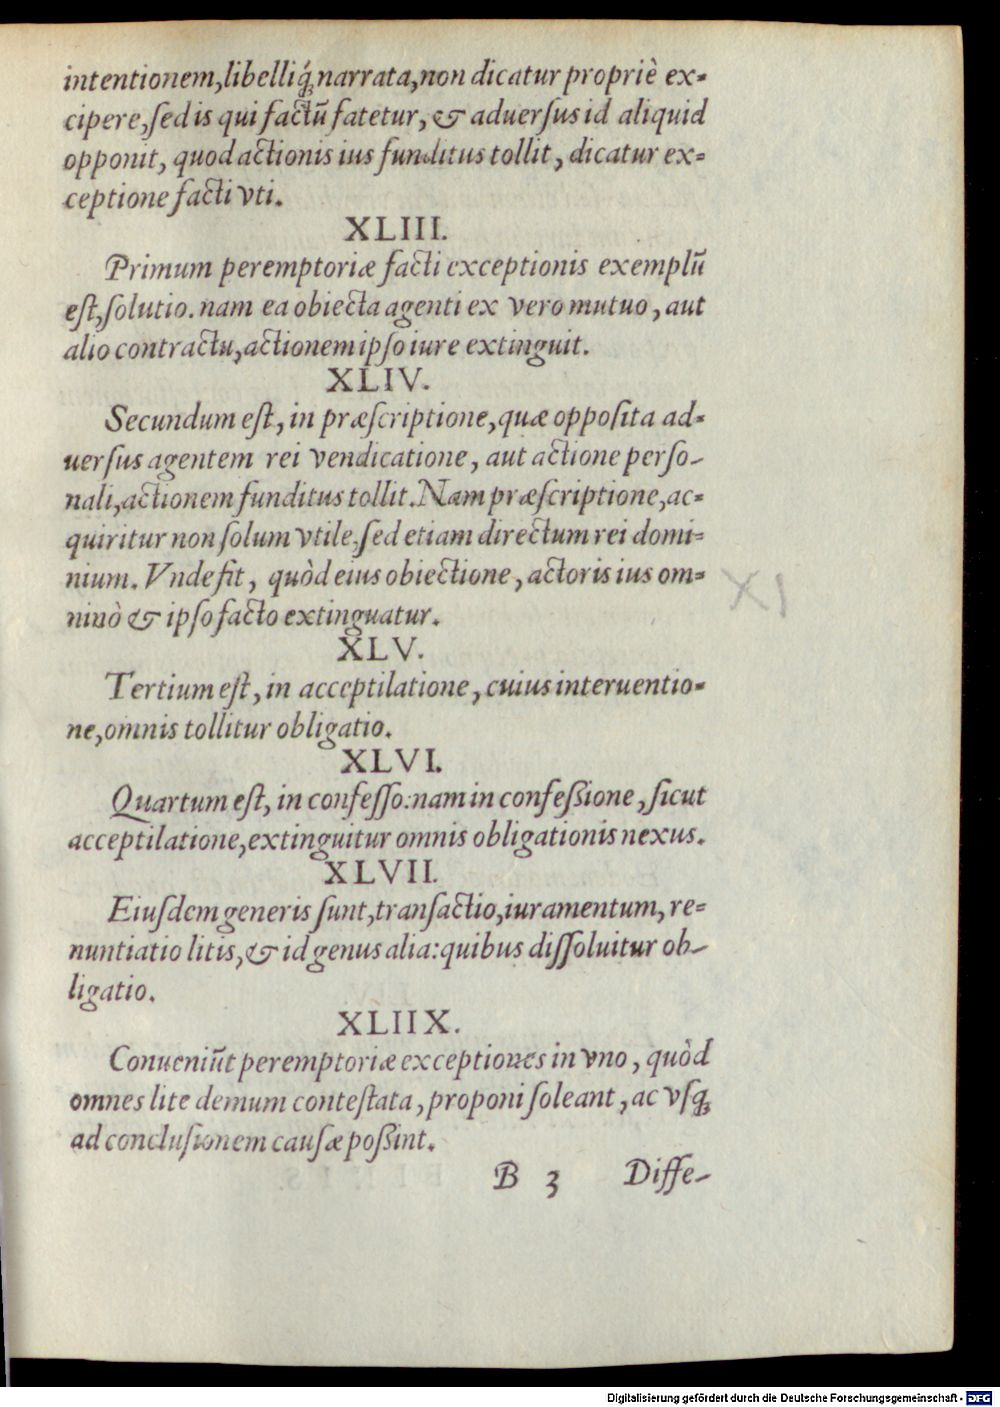 intentionem, libelliq́ꝫ narrata, non dicatur propriè ex=
cipere, sed is qui factũ fatetur, & aduersus id aliquid
opponit, quod actionis ius funditus tollit, dicatur ex=
ceptione facti vti.
XLIII.
Primum peremptoriæ facti exceptionis exemplũ
est, solutio. nam ea obiecta agenti ex vero mutuo, aut
alio contractu, actionem ipso iure extinguit.
XLIV.
Secundum est, in præscriptione, quæ opposita ad=
uersus agentem rei vendicatione, aut actione perso-
nali, actionem funditus tollit. Nam præscriptione, ac=
quiritur non solum vtile, sed etiam directum rei domi=
nium. Vnde fit, quòd eius obiectione, actoris ius om=
ninò & ipso facto extinguatur.
XLV.
Tertium est, in acceptilatione, cuius interuentio=
ne, omnis tollitur obligatio.
XLVI.
Quartum est, in confesso: nam in confeßione, sicut
acceptilatione, extinguitur omnis obligationis nexus.
XLVII.
Eiusdem generis sunt, transactio, iuramentum, re=
nuntiatio litis, & id genus alia: quibus dissoluitur ob-
ligatio.
XLIIX.
Conueniũt peremptoriæ exceptiones in vno, quòd
omnes lite demum contestata, proponi soleant, ac vsqꝫ
ad conclusionem causæ poßint.
B 3 Diffe-
XI
Digitalisierung gefördert durch die Deutsche Forschungsgemeinschaft - DFG